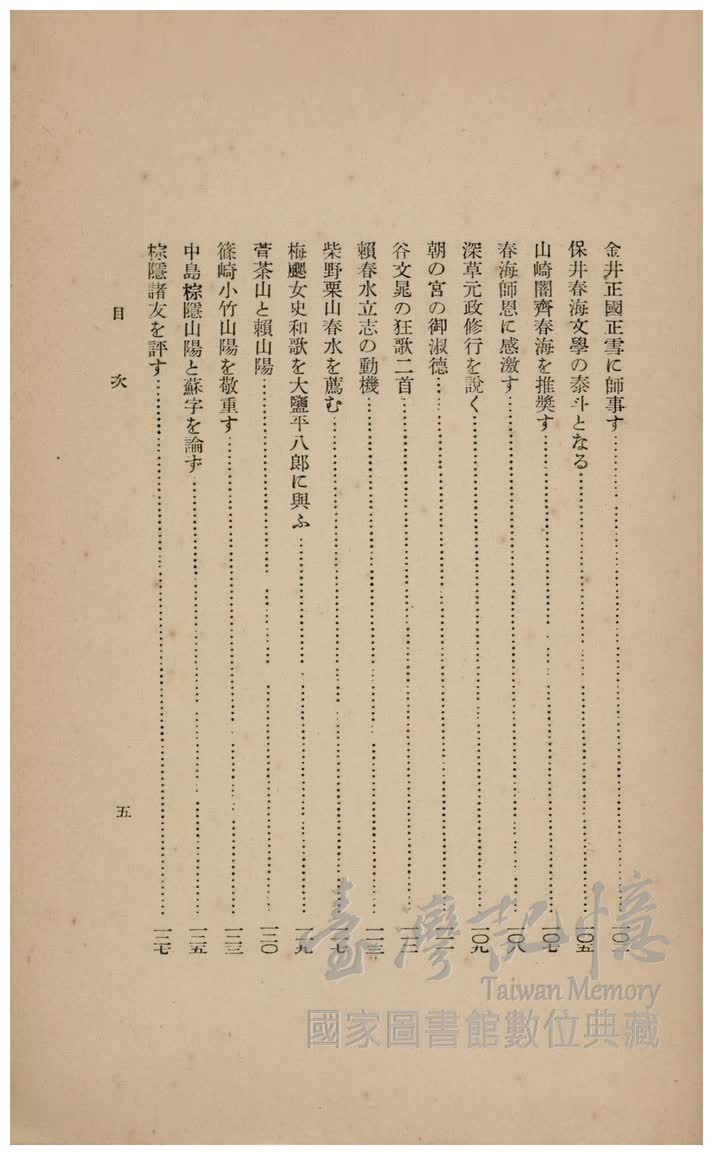 金井正國正雪に師事す……一〇一
保井春海文學の泰斗となる……一〇五
山崎闇齊春海を推奬す……一〇七
春海師恩に感激す……一〇八
深草元政修行を說く……一〇九
朝の宮の御淑德……一一一
谷文晁の狂歌二首……一一二
賴春水立志の動機……一一三
柴野栗山春水を薦む……一一七
梅颸女史和歌を大鹽平八郎に與ふ……一一九
菅茶山と賴山陽……一二〇
篠崎小竹山陽を敬重す……一二三
中島棕隱山陽と蘇字を論ず……一二五
棕隱諸友を評す……一二七
目次
五
臺灣記憶
Taiwan Memory
國家圖書館數位典藏